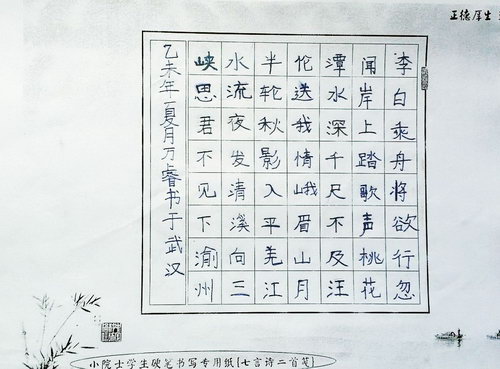 正德厚生
李白乘舟将欲行忽
闻岸上踏歌声桃花
潭水深千尺不及汪
伦送我情峨眉山月
半轮秋影入平羌江
水流夜发清溪向三
峡思君不见下渝州
乙未年夏月万睿书于武汉
小院士学生硬笔书写专用纸[七言诗二首笺]